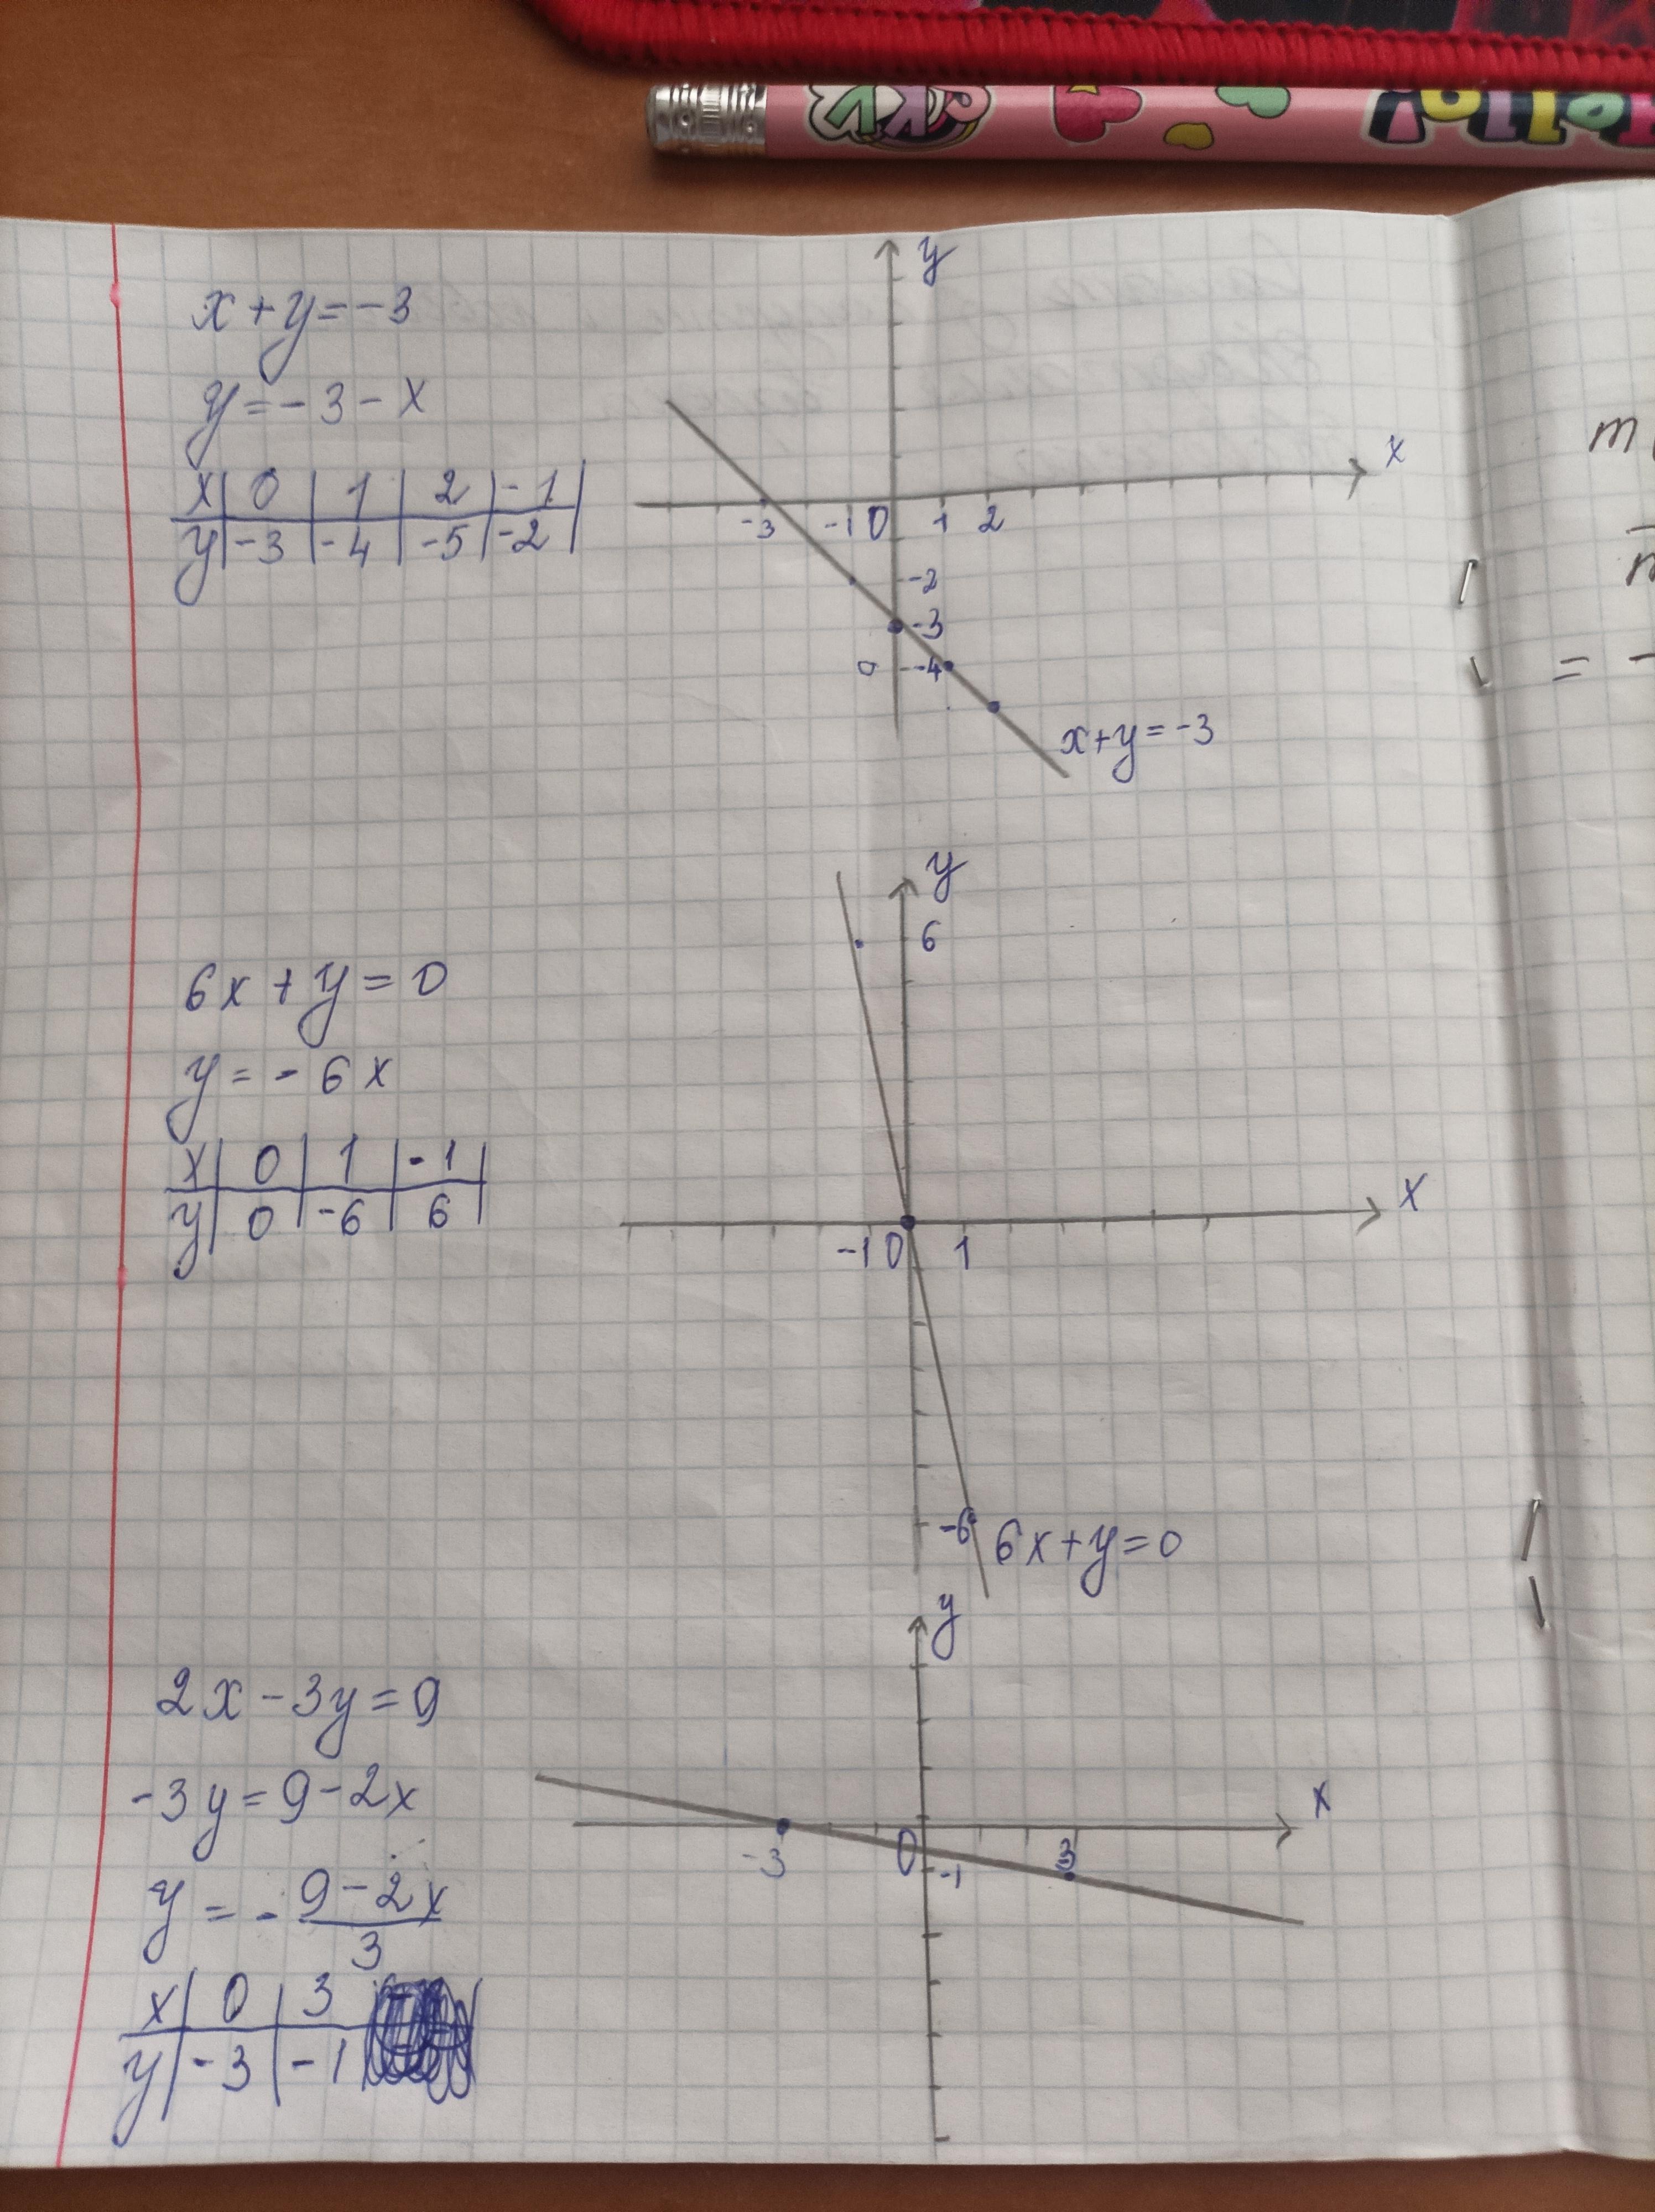 Hello!
y
x + y = -3
y = -3 - x
x | 0 | 1 | 2 | -1
y | -3 | -4 | -5 | -2
x
-3 -1 0 1 2
-2
-3
0 -4
x+y=-3
m
=
y
6
6x + y = 0
y = -6x
x | 0 | 1 | -1
y | 0 | -6 | 6
x
-1 0 1
-6 6x+y=0
y
2x - 3y = 9
-3y = 9 - 2x
y = - 9 - 2x
3
x | 0 | 3
y | -3 | -1
x
-3 0 -1 3